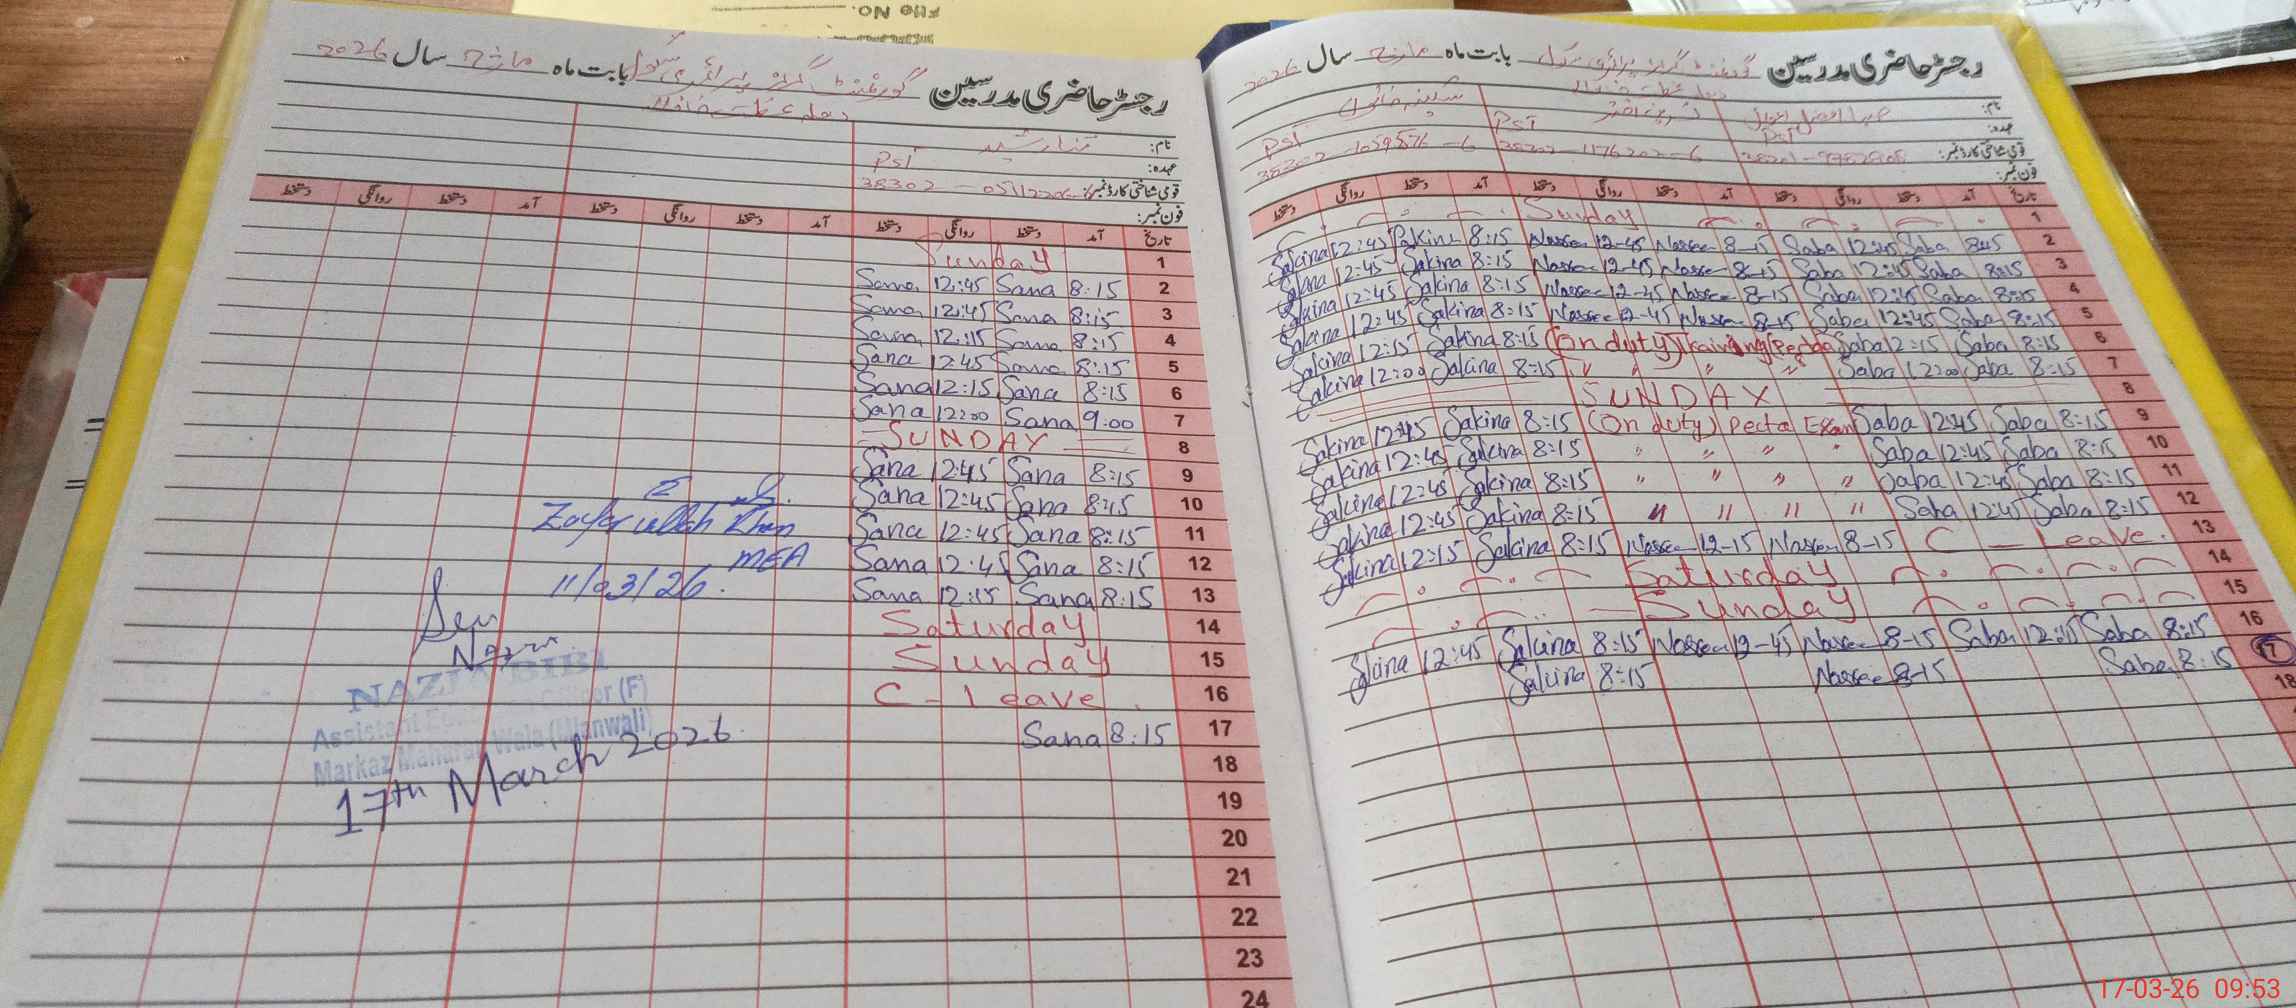 File No.
رجسٹر حاضری مدرسین گورنمنٹ گرلز پرائمری سکول بابت ماہ مارچ سال 2026
نام:
عہدہ: PST
قومی شناختی کارڈ نمبر: 38302
فون نمبر:
تاریخ آمد دستخط روانگی دستخط آمد دستخط روانگی دستخط آمد دستخط روانگی دستخط
Sunday 1
Sana 12:45 Sana 8:15 2
Sana 12:45 Sana 8:15 3
Sana 12:15 Sana 8:15 4
Sana 12:45 Sana 8:15 5
Sana 12:15 Sana 8:15 6
Sana 12:00 Sana 9:00 7
SUNDAY 8
Sana 12:45 Sana 8:15 9
Sana 12:45 Sana 8:15 10
Sana 12:45 Sana 8:15 11
Sana 12:45 Sana 8:15 12
Sana 12:15 Sana 8:15 13
Saturday 14
Sunday 15
C - Leave 16
Sana 8:15 17
18
19
20
21
22
23
24
Zafar ullah Khan
MEA
11/03/26.
Seen
NAZIA BIBI
Assistant Education Officer (F)
Markaz Wala (Mianwali)
17th March 2026
رجسٹر حاضری مدرسین گورنمنٹ گرلز پرائمری سکول بابت ماہ مارچ سال 2026
نام:
عہدہ: PST PST PST
قومی شناختی کارڈ نمبر:
فون نمبر:
تاریخ آمد دستخط روانگی دستخط آمد دستخط روانگی دستخط آمد دستخط روانگی دستخط
Sunday 1
Sakina 12:45 Sakina 8:15 Nasren 12-45 Nasren 8-15 Saba 12:45 Saba 8:15 2
Sakina 12:45 Sakina 8:15 Nasren 12-45 Nasren 8-15 Saba 12:45 Saba 8:15 3
Sakina 12:45 Sakina 8:15 Nasren 12-45 Nasren 8-15 Saba 12:45 Saba 8:15 4
Sakina 12:45 Sakina 8:15 Nasren 12-45 Nasren 8-15 Saba 12:45 Saba 8:15 5
Sakina 12:15 Sakina 8:15 (On duty) Training Pectaa Saba 12:15 Saba 8:15 6
Sakina 12:00 Sakina 8:15 " " " " Saba 12:00 Saba 8:15 7
SUNDAY 8
Sakina 12:45 Sakina 8:15 (On duty) Pecta Exam Saba 12:45 Saba 8:15 9
Sakina 12:45 Sakina 8:15 " " " " Saba 12:45 Saba 8:15 10
Sakina 12:45 Sakina 8:15 " " " " Saba 12:45 Saba 8:15 11
Sakina 12:45 Sakina 8:15 " " " " Saba 12:45 Saba 8:15 12
Sakina 12:15 Sakina 8:15 Nasren 12-15 Nasren 8-15 C - Leave. 13
Saturday 14
Sunday 15
Sakina 12:45 Sakina 8:15 Nasren 12-45 Nasren 8-15 Saba 12:45 Saba 8:15 16
Sakina 8:15 Nasren 8-15 Saba 8:15 17
18
17-03-26 09:53